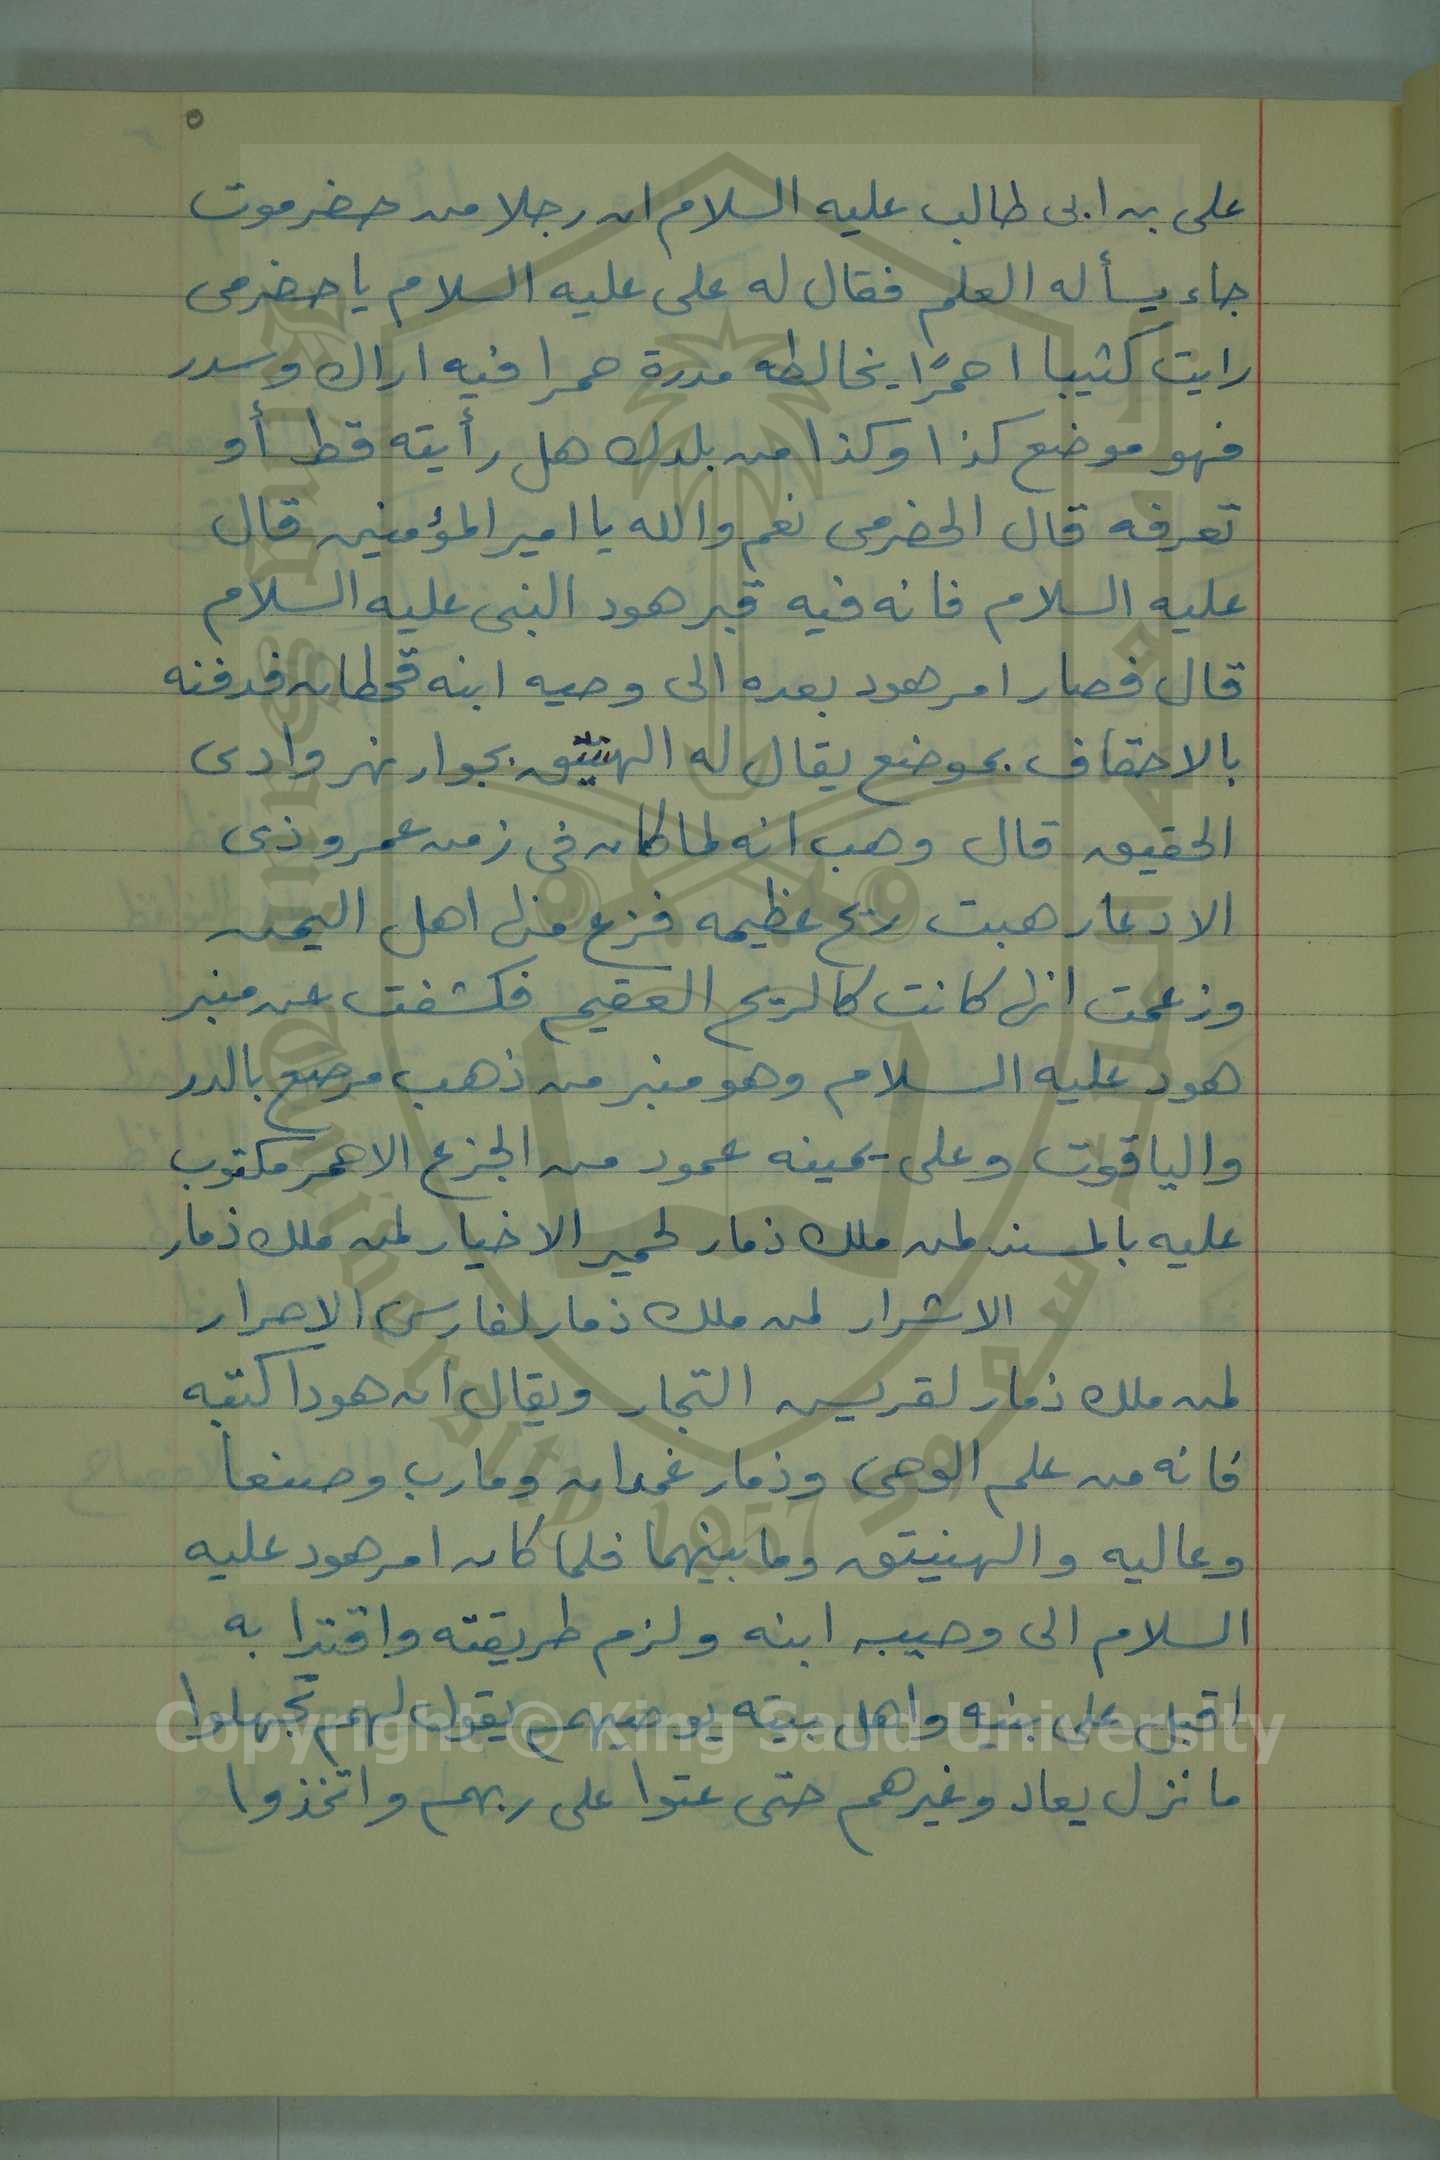 ٥
على بن ابى طالب عليه السلام ان رجلا من حضرموت
جاء يسأله العلم فقال له على عليه السلام يا حضرمى
رايت كثيبا احمرًا يخالطه مدرة حمرا فيه اراك وسدر
فهو موضع كذا وكذا من بلدك هل رأيته قط أو
تعرفه قال الحضرمى نعم والله يا امير المؤمنين قال
عليه السلام فانه فيه قبر هود النبى عليه السلام
قال فصار امر هود بعده الى وصيه ابنه قحطان فدفنه
بالاحقاف بموضع يقال له الهنيق بجوار نهر وادى
الحقيق قال وهب انه لما كان فى زمن عمرو ذى
الادعار هبت ريح عظيمه فزع منها اهل اليمن
وزعمت انها كانت كالريح العقيم فكشفت عن منبر
هود عليه السلام وهو منبر من ذهب مرصع بالدر
والياقوت وعلى يمينه عمود من الجزع الاحمر مكتوب
عليه بالمسند لمن ملك ذمار لحمير الاخيار لمن ملك ذمار
الاشرار لمن ملك ذمار لفارس الاحرار
لمن ملك ذمار لقريس التجار ويقال ان هودا كتبه
فانه من علم الوحى وذمار غمدان ومارب وصنعا
وعاليه والهنيق وما بينهما فلما كان امر هود عليه
السلام الى وصيه ابنه ولزم طريقته واقتدا به
اقبل على بنيه واهل بيته يوصيهم يقول لهم تجهلوا
ما نزل بعاد وغيرهم حتى عتوا على ربهم واتخذوا
Copyright © King Saud University
King Saud University
1957